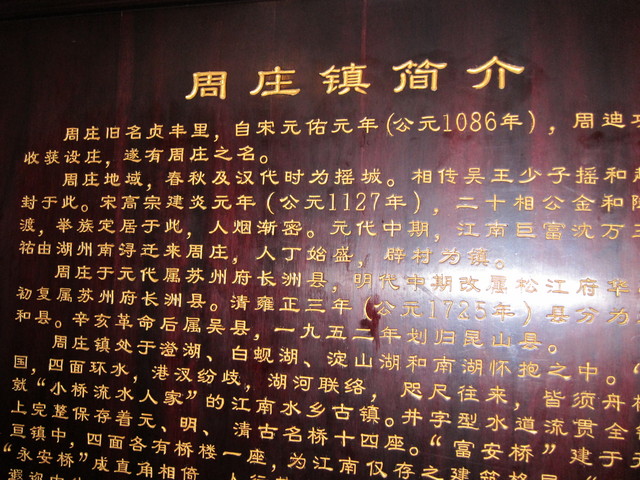 周庄镇简介
周庄旧名贞丰里，自宋元佑元年(公元1086年)，周迪
收获设庄，遂有周庄之名。
周庄地域，春秋及汉代时为摇城。相传吴王少子摇和
封于此。宋高宗建炎元年（公元1127年），二十相公金和
渡，举族定居于此，人烟渐密。元代中期，江南巨富沈万三
祐由湖州南浔迁来周庄，人丁始盛，辟村为镇。
周庄于元代属苏州府长洲县，明代中期改属松江府华
初复属苏州府长洲县。清雍正三年（公元1725年）县分为
和县。辛亥革命后属吴县，一九五二年划归昆山县。
周庄镇处于澄湖、白蚬湖、淀山湖和南湖怀抱之中。“
国，四面环水，港汊纷歧，湖河联络，咫尺往来，皆须舟
就“小桥流水人家”的江南水乡古镇。井字型水道流贯全
上完整保存着元、明、清古名桥十四座。“富安桥”建于元
亘镇中，四面各有桥楼一座，为江南仅存之建筑格局
“永安桥”成直角相倚